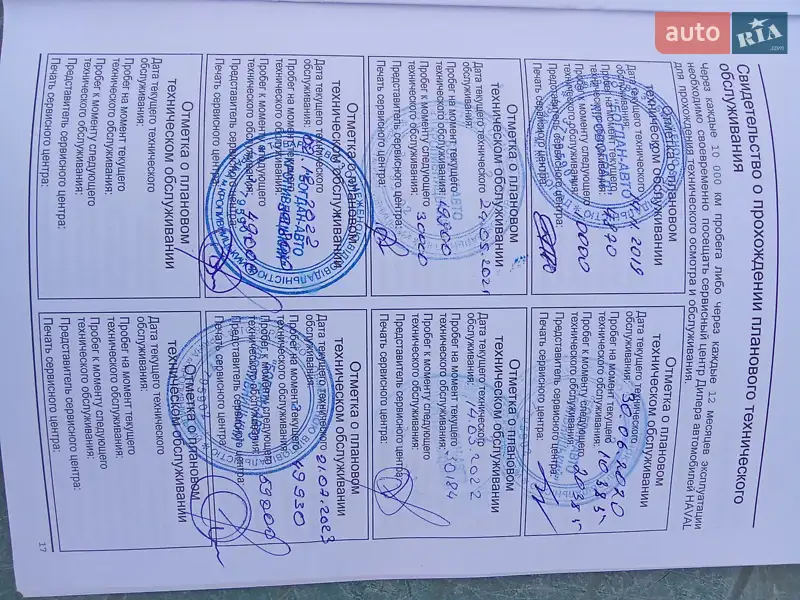 auto RIA .com
Свидетельство о прохождении планового технического
обслуживания
Через каждые 10 000 км пробега либо через каждые 12 месяцев эксплуатации
необходимо своевременно посещать сервисный центр Дилера автомобилей HAVAL
для прохождения технического осмотра и обслуживания.
Отметка о плановом
техническом обслуживании
Дата текущего технического
обслуживания: 2019
Пробег на момент текущего
технического обслуживания:
Пробег к моменту следующего
технического обслуживания:
Представитель сервисного центра:
Печать сервисного центра:
Отметка о плановом
техническом обслуживании
Дата текущего технического
обслуживания: 30.06.2020
Пробег на момент текущего
технического обслуживания:
Пробег к моменту следующего
технического обслуживания:
Представитель сервисного центра:
Печать сервисного центра:
Отметка о плановом
техническом обслуживании
Дата текущего технического
обслуживания: 24.05.2021
Пробег на момент текущего
технического обслуживания:
Пробег к моменту следующего
технического обслуживания: 30000
Представитель сервисного центра:
Печать сервисного центра:
Отметка о плановом
техническом обслуживании
Дата текущего технического
обслуживания: 14.03.2022
Пробег на момент текущего
технического обслуживания:
Пробег к моменту следующего
технического обслуживания:
Представитель сервисного центра:
Печать сервисного центра:
Отметка о плановом
техническом обслуживании
Дата текущего технического
обслуживания: 2022
Пробег на момент текущего
технического обслуживания:
Пробег к моменту следующего
технического обслуживания: 49000
Представитель сервисного центра:
Печать сервисного центра:
БОГДАН-АВТО
Отметка о плановом
техническом обслуживании
Дата текущего технического
обслуживания: 21.07.2023
Пробег на момент текущего
технического обслуживания: 49930
Пробег к моменту следующего
технического обслуживания: 59000
Представитель сервисного центра:
Печать сервисного центра:
Отметка о плановом
техническом обслуживании
Дата текущего технического
обслуживания:
Пробег на момент текущего
технического обслуживания:
Пробег к моменту следующего
технического обслуживания:
Представитель сервисного центра:
Печать сервисного центра:
Отметка о плановом
техническом обслуживании
Дата текущего технического
обслуживания:
Пробег на момент текущего
технического обслуживания:
Пробег к моменту следующего
технического обслуживания:
Представитель сервисного центра:
Печать сервисного центра:
17